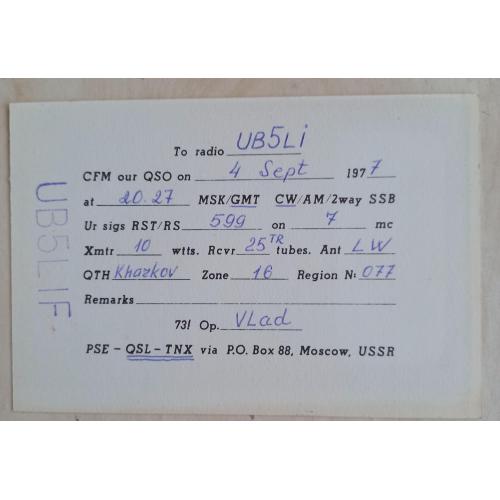 To radio UB5Li
CFM our QSO on 4 Sept 1977
at 20.27 MSK/GMT CW/AM/2way SSB
Ur sigs RST/RS 599 on 7 mc
Xmtr 10 wtts. Rcvr 25 TR tubes. Ant LW
QTH Kharkov Zone 16 Region N: 077
Remarks
73! Op. VLad
PSE – QSL – TNX via P.O. Box 88, Moscow, USSR
UB5LIF